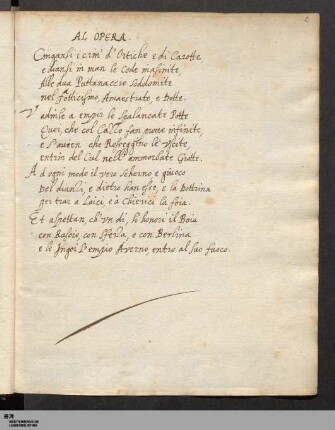 AL OPERA
Cingansi i crini d'Ortiche e di Carotte
e diansi in man le Code
Alle due Puttanaccie Soddomite
nel fotticismo, Amaestrate, e Dotte.
admise a empir le spalancate Potte
Quei, che col Cazzo fan prove infinite,
e s'auuien che
entrin del Cul nell'ammorbate Grotte.
Ad ogni modo il vero scherno, e giuoco
Del dianzi, e dietro han esse, e la Dottrina
per trar a Laici, e a Chierici la foia.
Et aspettan, ch'un dì, le honori il Boia
con Rasoio, con sferza, e con Berlina
e le Ingoi l'empio Averno, entro al suo fuoco.